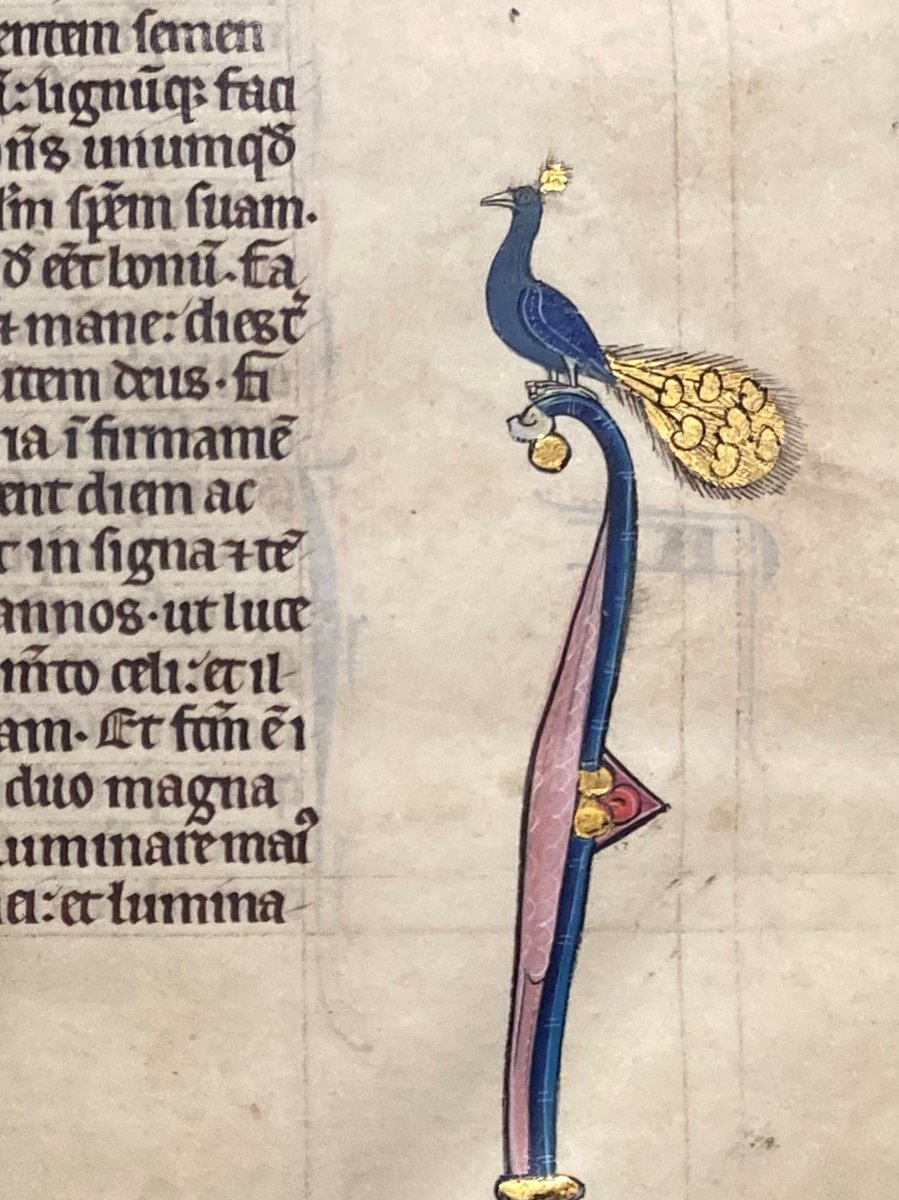 entem semen
ı̄: lignūqꝫ faci
oñs unumqđ
l'm spēm suam.
đ eēt bonū. Fa
⁊ mane: dies t̾
utem deus. Fi
ria ī firmamē
ent diem ac
t in signa ⁊ tē
annos. ut luce
m̄to celi: et il-
am. Et fc̄m ē ı
duo magna
luminare maiꝰ
iei: et lumina